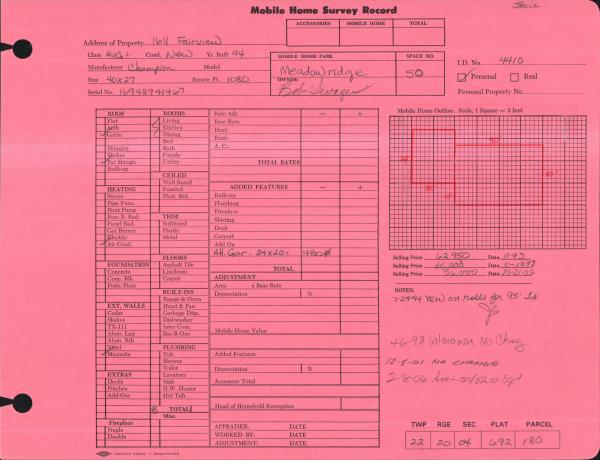 Josie
Mobile Home Survey Record
ACCESSORIES MOBILE HOME TOTAL
Address of Property 1614 Fairview
Class AVG+ Cond. New Yr. Built 94
Manufacturer Champion Model
Size 40x27 Square Ft. 1080
Serial No.
MOBILE HOME PARK SPACE NO.
Meadowridge 50
OWNER:
I.D. No. 4410
Personal Real
Personal Property No.
ROOF
Flat
Arch
Gable
Shingles
Shakes
Pat Shingle
Built-up
HEATING
Stoves
Pipe Furn.
Heat Pump
Base B. Rad.
Panel Rad.
Gas Burner
Electric
Air Cond.
FOUNDATION
Concrete
Conc. Blk.
Posts/Piers
EXT. WALLS
Cedar
Shakes
TX-111
Alum. Lap
Alum. Rib
Vinyl
Masonite
EXTRAS
Decks
Porches
Add-Ons
Fireplace
Single
Double
ROOMS
Living
Kitchen
Dining
Bed
Bath
Family
Utility
CEILED
Wall Board
Paneled
Plast. Brd.
TRIM
Softwood
Plastic
Metal
FLOORS
Asphalt Tile
Linoleum
Carpet
BUILT-INS
Range & Oven
Hood & Fan
Garbage Disp.
Dishwasher
Inter Com.
Bar-B-Que
PLUMBING
Tub
Shower
Toilet
Lavatory
Sink
H.W. Heater
Hot Tub
8 TOTAL
Misc.
Rate Adj. — +
Base Rate
Heat:
Roof:
A. C.:
TOTAL RATES
ADDED FEATURES — +
Built-ins
Plumbing
Fireplace
Skirting
Deck
Carport
Add On
Att. Gar. 24x20= 480
TOTAL
ADJUSTMENT
Area x Base Rate
Depreciation %
Mobile Home Value
Added Features
Depreciation %
Accessory Total
Head of Household Exemption
APPRAISER: DATE
WORKED BY: DATE
ADJUSTMENT: DATE
Mobile Home Outline Scale, 1 Square = 2 feet
40'
27'
Selling Price 62,950 Date 11-93
Selling Price 61,000 Date 5-1997
Selling Price 56,000 Date 10-21-05
NOTES:
7-29-94 New on rolls for 95'
46-98 No Chng
12-5-01 No CHANGE
TWP RGE SEC PLAT PARCEL
22 20 04 692 180